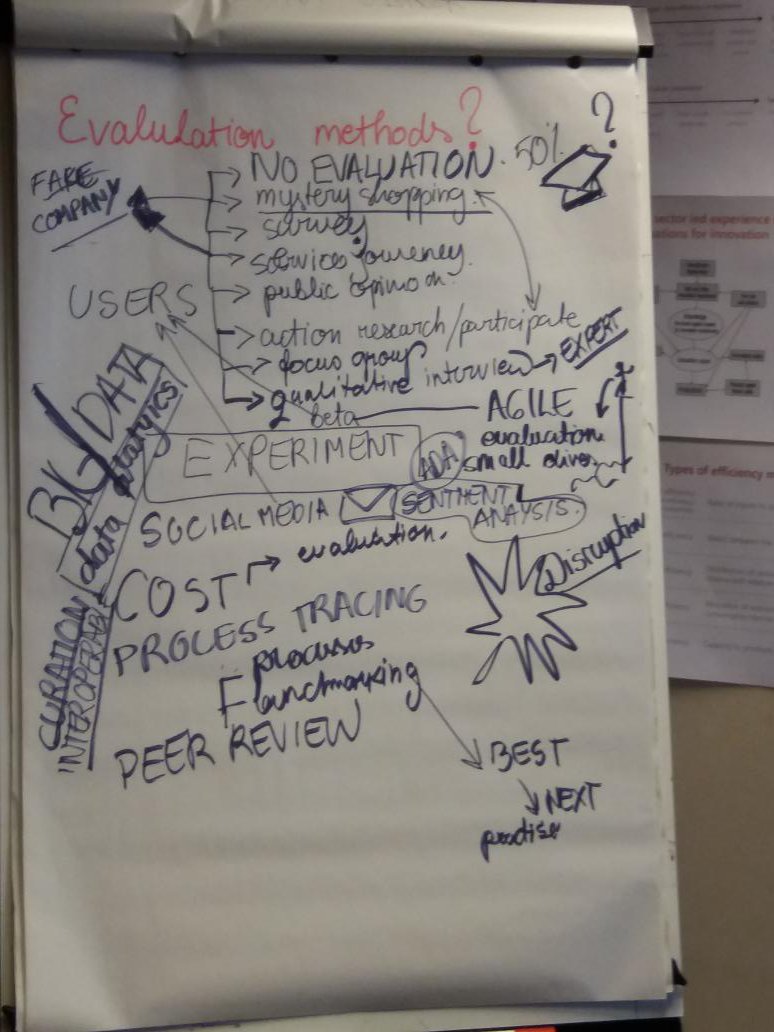 Evalulation methods?
?
NO EVALUATION. 50%
FAKE
COMPANY
mystery shopping.
survey
services journey.
public opinion.
USERS
action research/participate
focus group
qualitative interview
EXPERT
beta
AGILE
evaluation
small
EXPERIMENT
ADA
BIG DATA
data analytics
SOCIAL MEDIA
SENTMENT
ANAYSIS.
COST
evaluation.
Disruption
PROCESS TRACING
processes
benchmarking
CURATION
INTEROPERABLE
PEER REVIEW
BEST
NEXT
practise
sector led experience
ations for innovation
Types of efficiency m